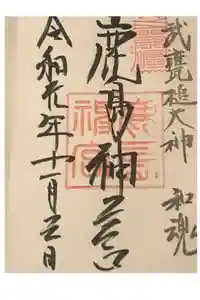 武甕槌大神 和魂
鹿島神宮
令和元年十一月三日